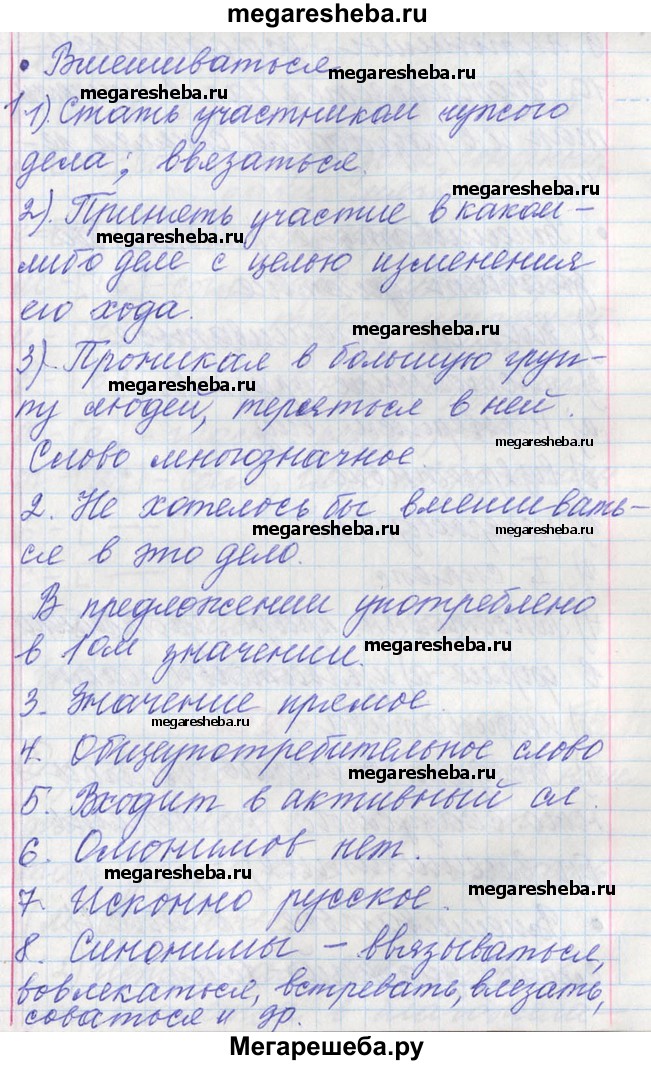 megaresheba.ru
• Вмешиваться.
megaresheba.ru
1 1). Стать участником чужого
megaresheba.ru
дела; ввязаться.
megaresheba.ru
2). Принять участие в каком-
megaresheba.ru
либо деле с целью изменения
его хода.
megaresheba.ru
3). Проникая в большую груп-
megaresheba.ru
пу людей, теряться в ней.
megaresheba.ru
Слово многозначное.
2. Не хотелось бы вмешивать-
megaresheba.ru megaresheba.ru
ся в это дело.
В предложении употреблено
megaresheba.ru
в 1ом значении.
3. Значение прямое.
megaresheba.ru
4. Общеупотребительное слово
megaresheba.ru
5. Входит в активный сл.
6. Омонимов нет.
megaresheba.ru megaresheba.ru
7. Исконно русское.
8. Синонимы – ввязываться,
вовлекаться, встревать, влезать,
соваться и др.
Мегарешеба.ру